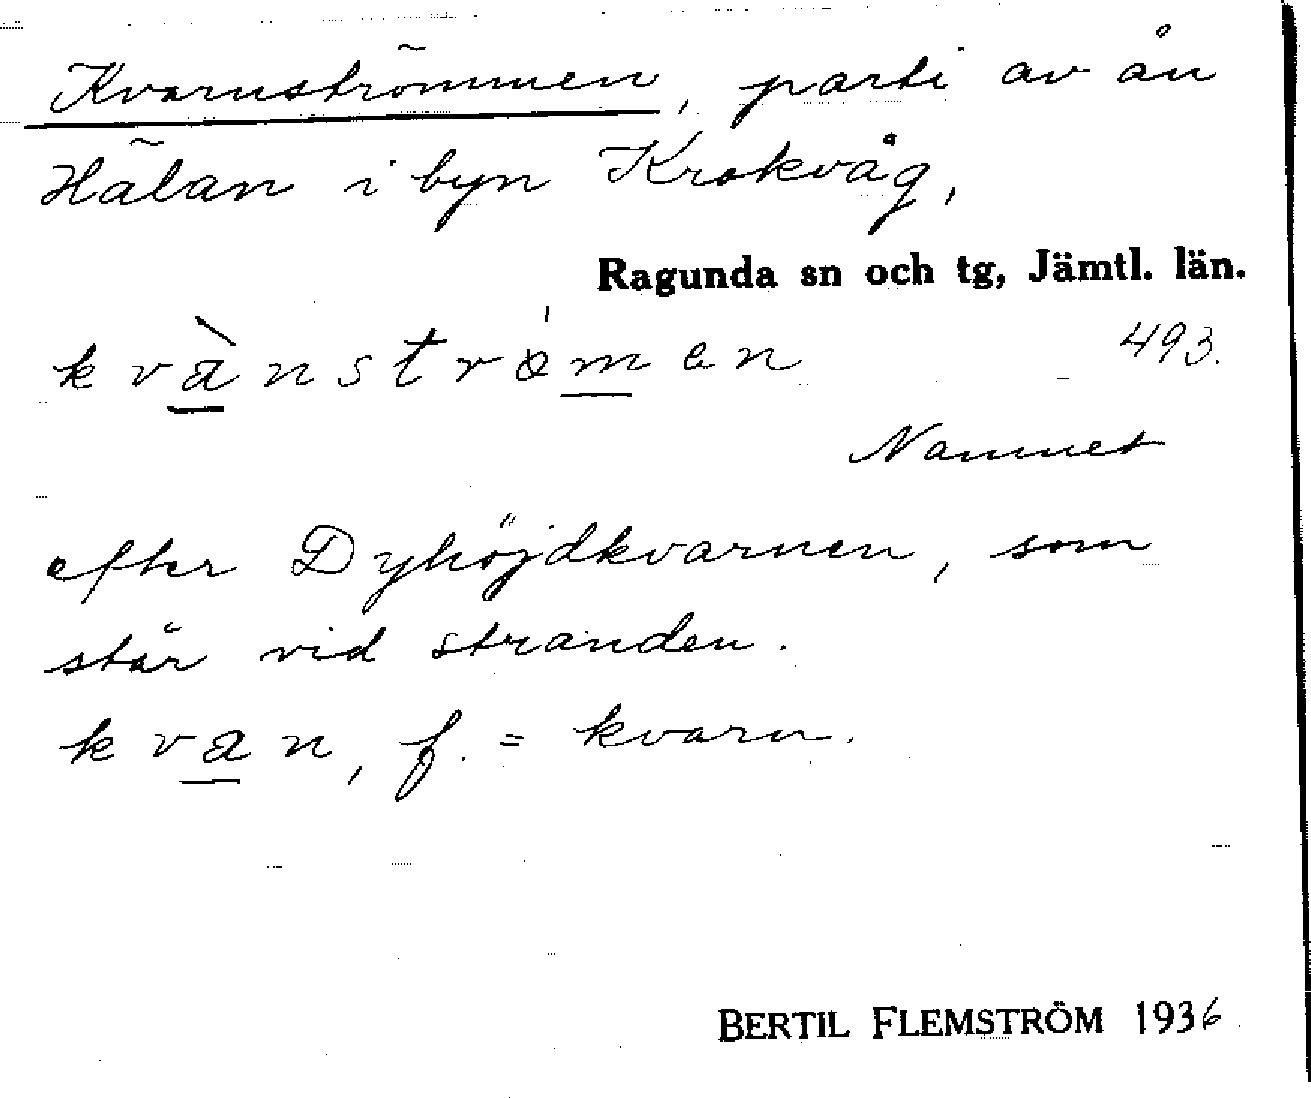 Kvarnströmmen, parti av ån
Hälan i byn Krokvåg,
Ragunda sn och tg, Jämtl. län.
kvànströ́men 493.
Namnet
efter Dyhöjdkvarnen, som
står vid stranden.
kvan, f. = kvarn.
BERTIL FLEMSTRÖM 1936